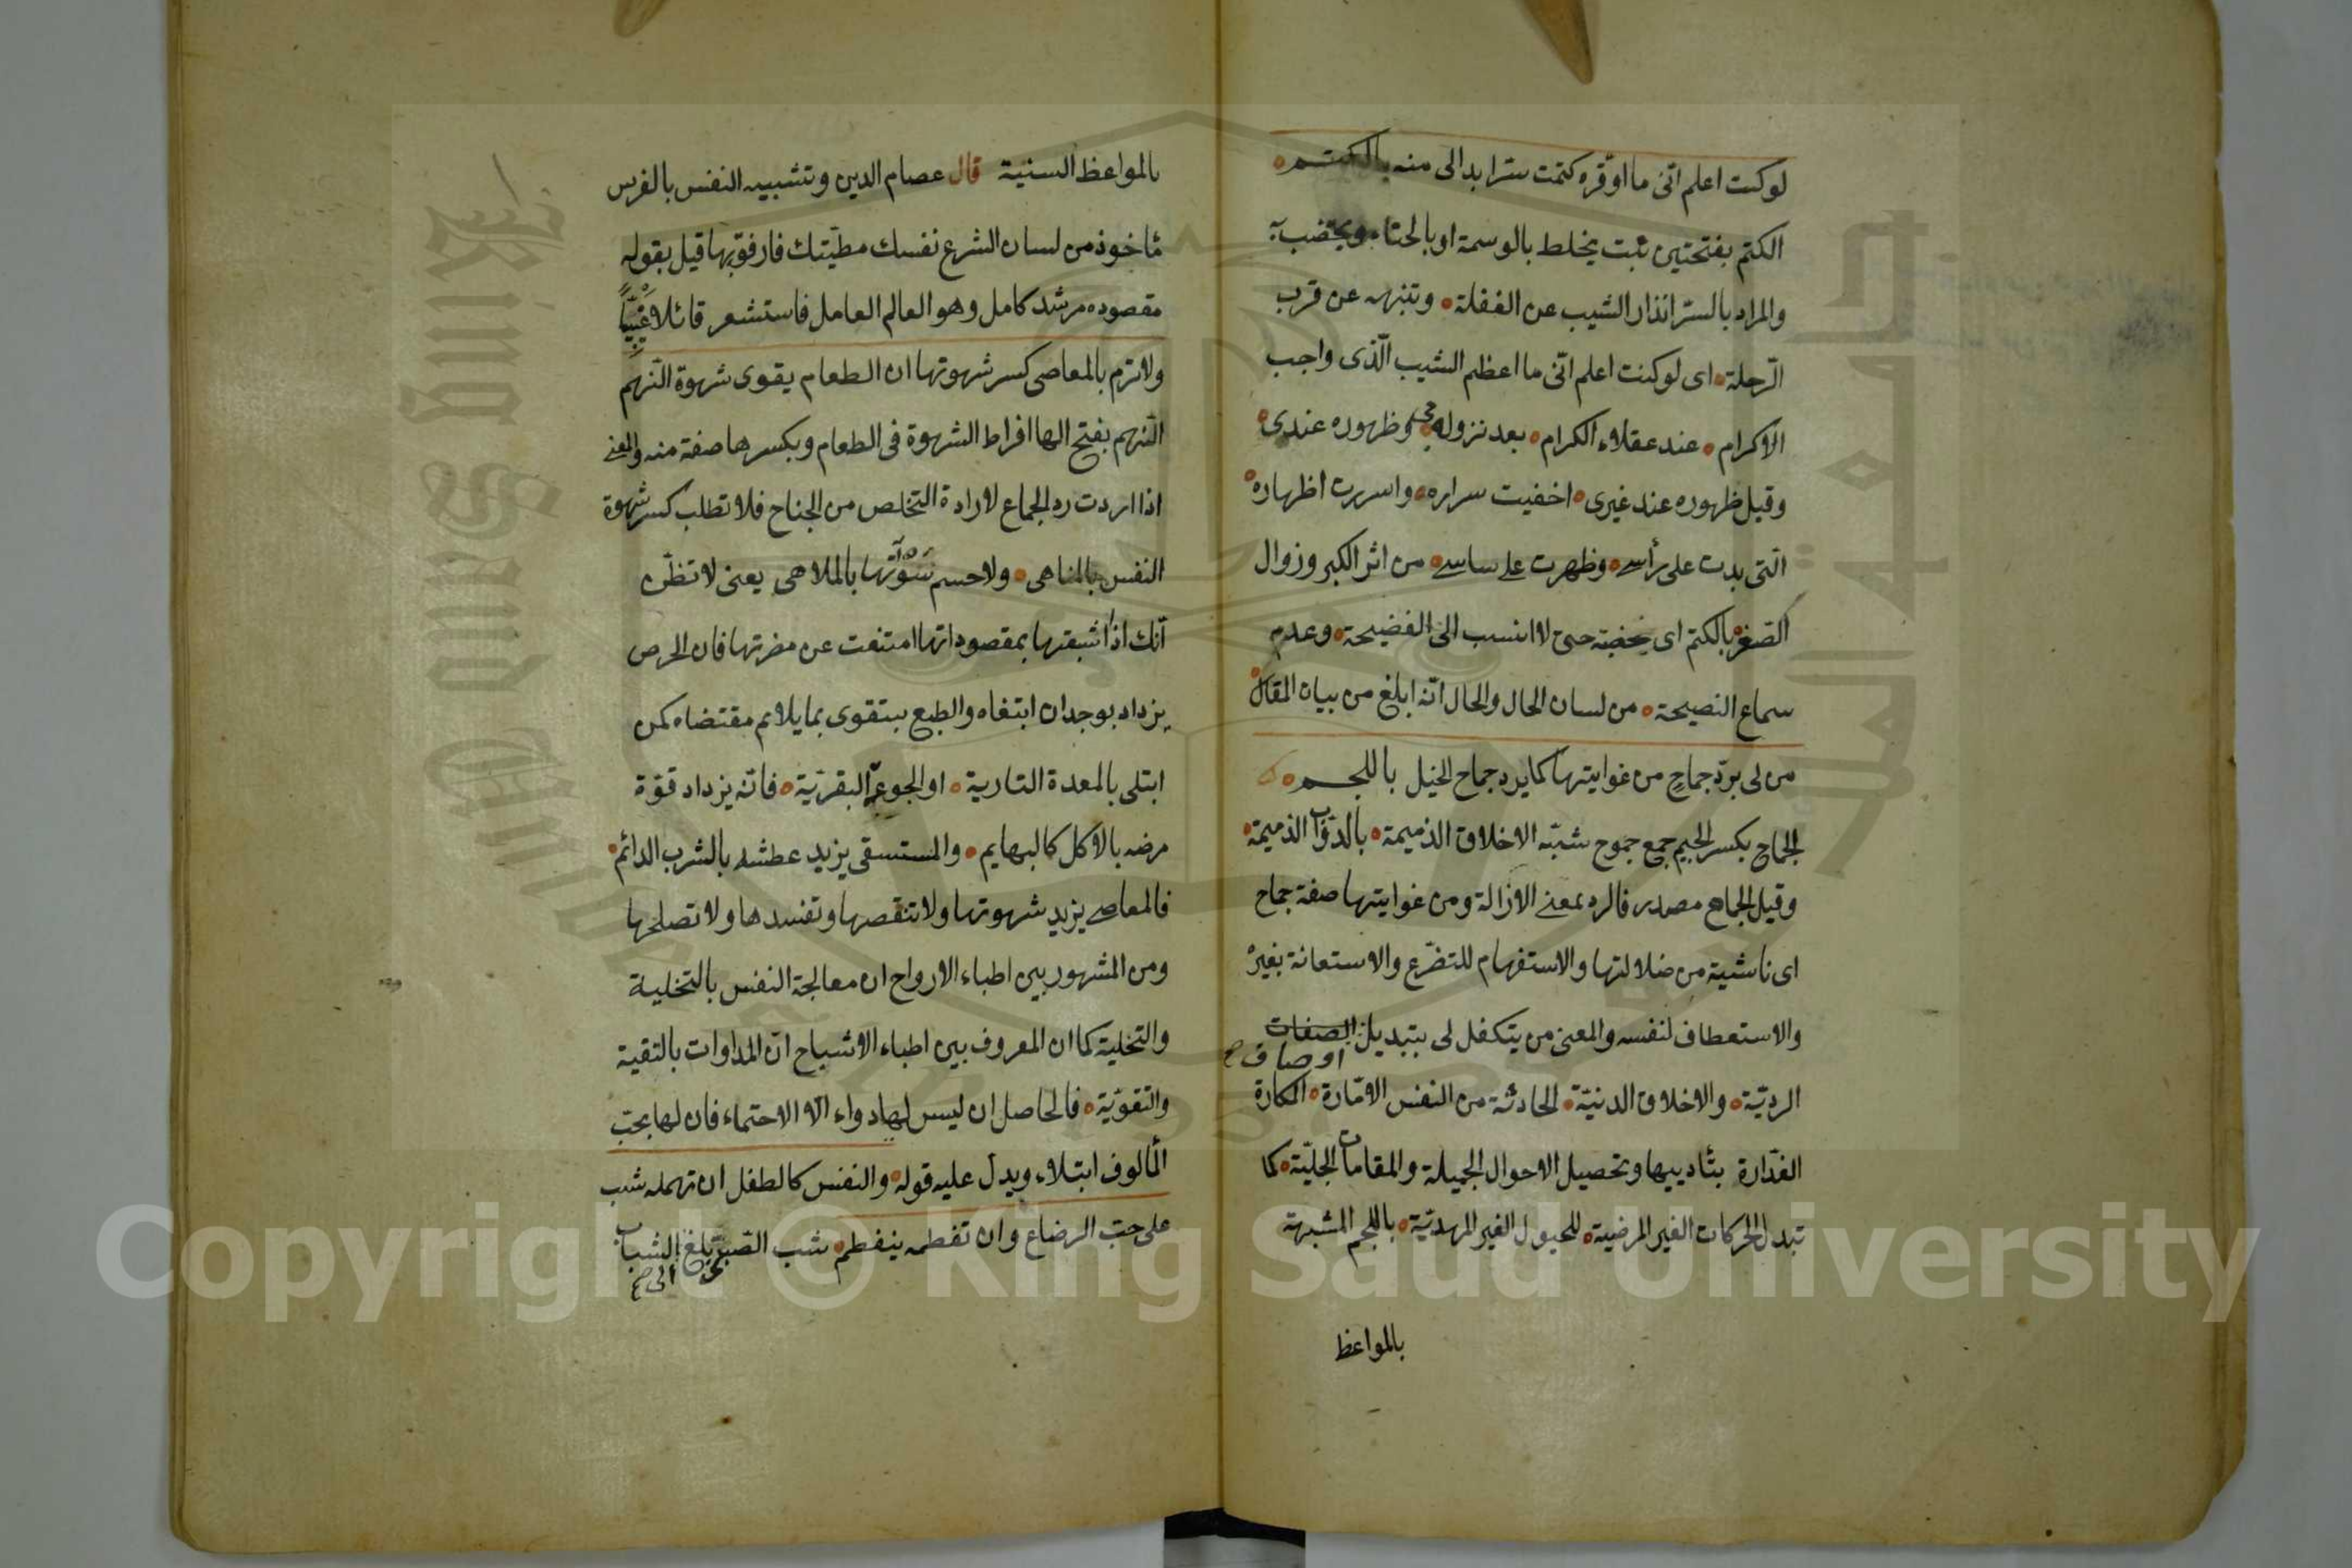 لوكنت اعلم انّى ما اوقّره كتمت سترا بدالى منه بالكتم
الكتم بفتحتين نبت يخلط بالوسمة او بالحناء ويختضب به
والمراد بالستر انذار الشيب عن الغفلة وتنبهه عن قرب
الرّحلة اى لوكنت اعلم انّى ما اعظم الشيب الّذى واجب
الاكرام عند عقلاء الكرام بعد نزوله وظهوره عندى
وقبل ظهوره عند غيرى اخفيت سراره واسررت اظهاره
الّتى بدت على رأسى وظهرت على ساسى من اثر الكبر وزوال
الصّغر بالكتم اى يخضبه حتى لا انسب الى الفضيحة وعدم
سماع النصيحة من لسان الحال والحال انّه ابلغ من بيان المقال
من لى بردّ جماح من غوايتها كما يرد جماح الخيل باللجم
الجماح بكسر الجيم جمع جموح شبّه الاخلاق الذميمة بالدّوّاب الذميمة
وقيل الجماح مصدر فالرد بمعنى الازالة ومن غوايتها صفة جماح
اى ناشية من ضلالتها والاستفهام للتضرّع والاستعانة بغيره
والاستعطاف لنفسه والمعنى من يتكفل لى بتبديل الصفات
اوصاف صح
الرديّة والاخلاق الدنيّة الحادثة من النفس الامّارة المكارة
الغدّارة بتأديبها وتحصيل الاحوال الجميلة والمقامات الجليّة كما
تبدل الحركات الغير المرضية للخيول الغير المهديّة باللجم المشبهة
بالمواعظ
بالمواعظ السنية قال عصام الدين وتشبيه النفس بالفرس
مأخوذ من لسان الشرع نفسك مطيّتك فارفق بها قيل بقوله
مقصوده مرشد كامل وهو العالم العامل فاستشعر قائلا
ولا ترم بالمعاصى كسر شهوتها ان الطعام يقوى شهوة النّهم
النّهم بفتح الها افراط الشهوة فى الطعام وبكسرها صفة منه والمعنى
اذا اردت رد الجماع لارادة التخلص من الجناح فلا تطلب كسر شهوة
النفس بالمناهى ولا حسم سَوْرتها بالملاهى يعنى لا تظنّ
انّك اذا اشبعتها بمقصوداتها امتنعت عن مضرتها فان الحرص
يزداد بوجدان ابتغاه والطبع يتقوى بما يلايم مقتضاه كمن
ابتلى بالمعدة النارية او الجوع البقريّة فانّه يزداد قوّة
مرضه بالاكل كالبهايم والمستسقى يزيد عطشه بالشرب الدائم
فالمعاصى يزيد شهوتها ولا تنقصها وتفسدها ولا تصلحها
ومن المشهور بين اطباء الارواح ان معالجة النفس بالتخلية
والتحلية كما ان المعروف بين اطباء الاشباح انّ المداوات بالنقية
والتقويّة فالحاصل ان ليس لها دواء الّا الاحتماء فان لها بحبّ
المألوف ابتلاء ويدل عليه قوله والنفس كالطفل ان تهمله شب
على حبّ الرضاع وان تفطمه ينفطم شب الصّبىّ بلغ الشباب
الى صح
King Saud University
جامعة الملك سعود
1957
Copyright © King Saud University